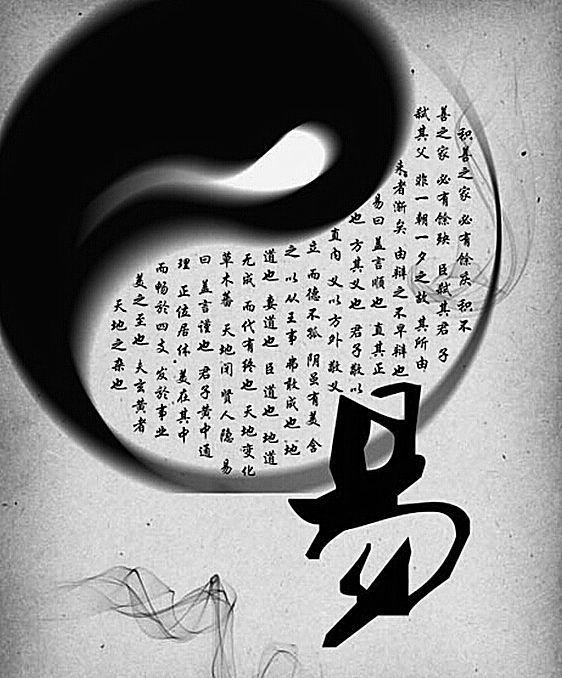 积善之家 必有餘庆 积不
善之家 必有餘殃 臣弑其君 子
弑其父 非一朝一夕之故 其所由
来者渐矣 由辩之不早辩也
易曰 盖言順也 直其正
也 方其义也 君子敬以
直内 义以方外 敬义
立 而德不孤 阴虽有美 含
之 以从王事 弗敢成也 地
道也 妻道也 臣道也 地道
无成 而代有终也 天地变化
草木蕃 天地闭 贤人隐 易
曰 盖言谨也 君子黄中通
理 正位居体 美在其中
而畅於四支 发於事业
美之至也 夫玄黄者
天地之杂也
易